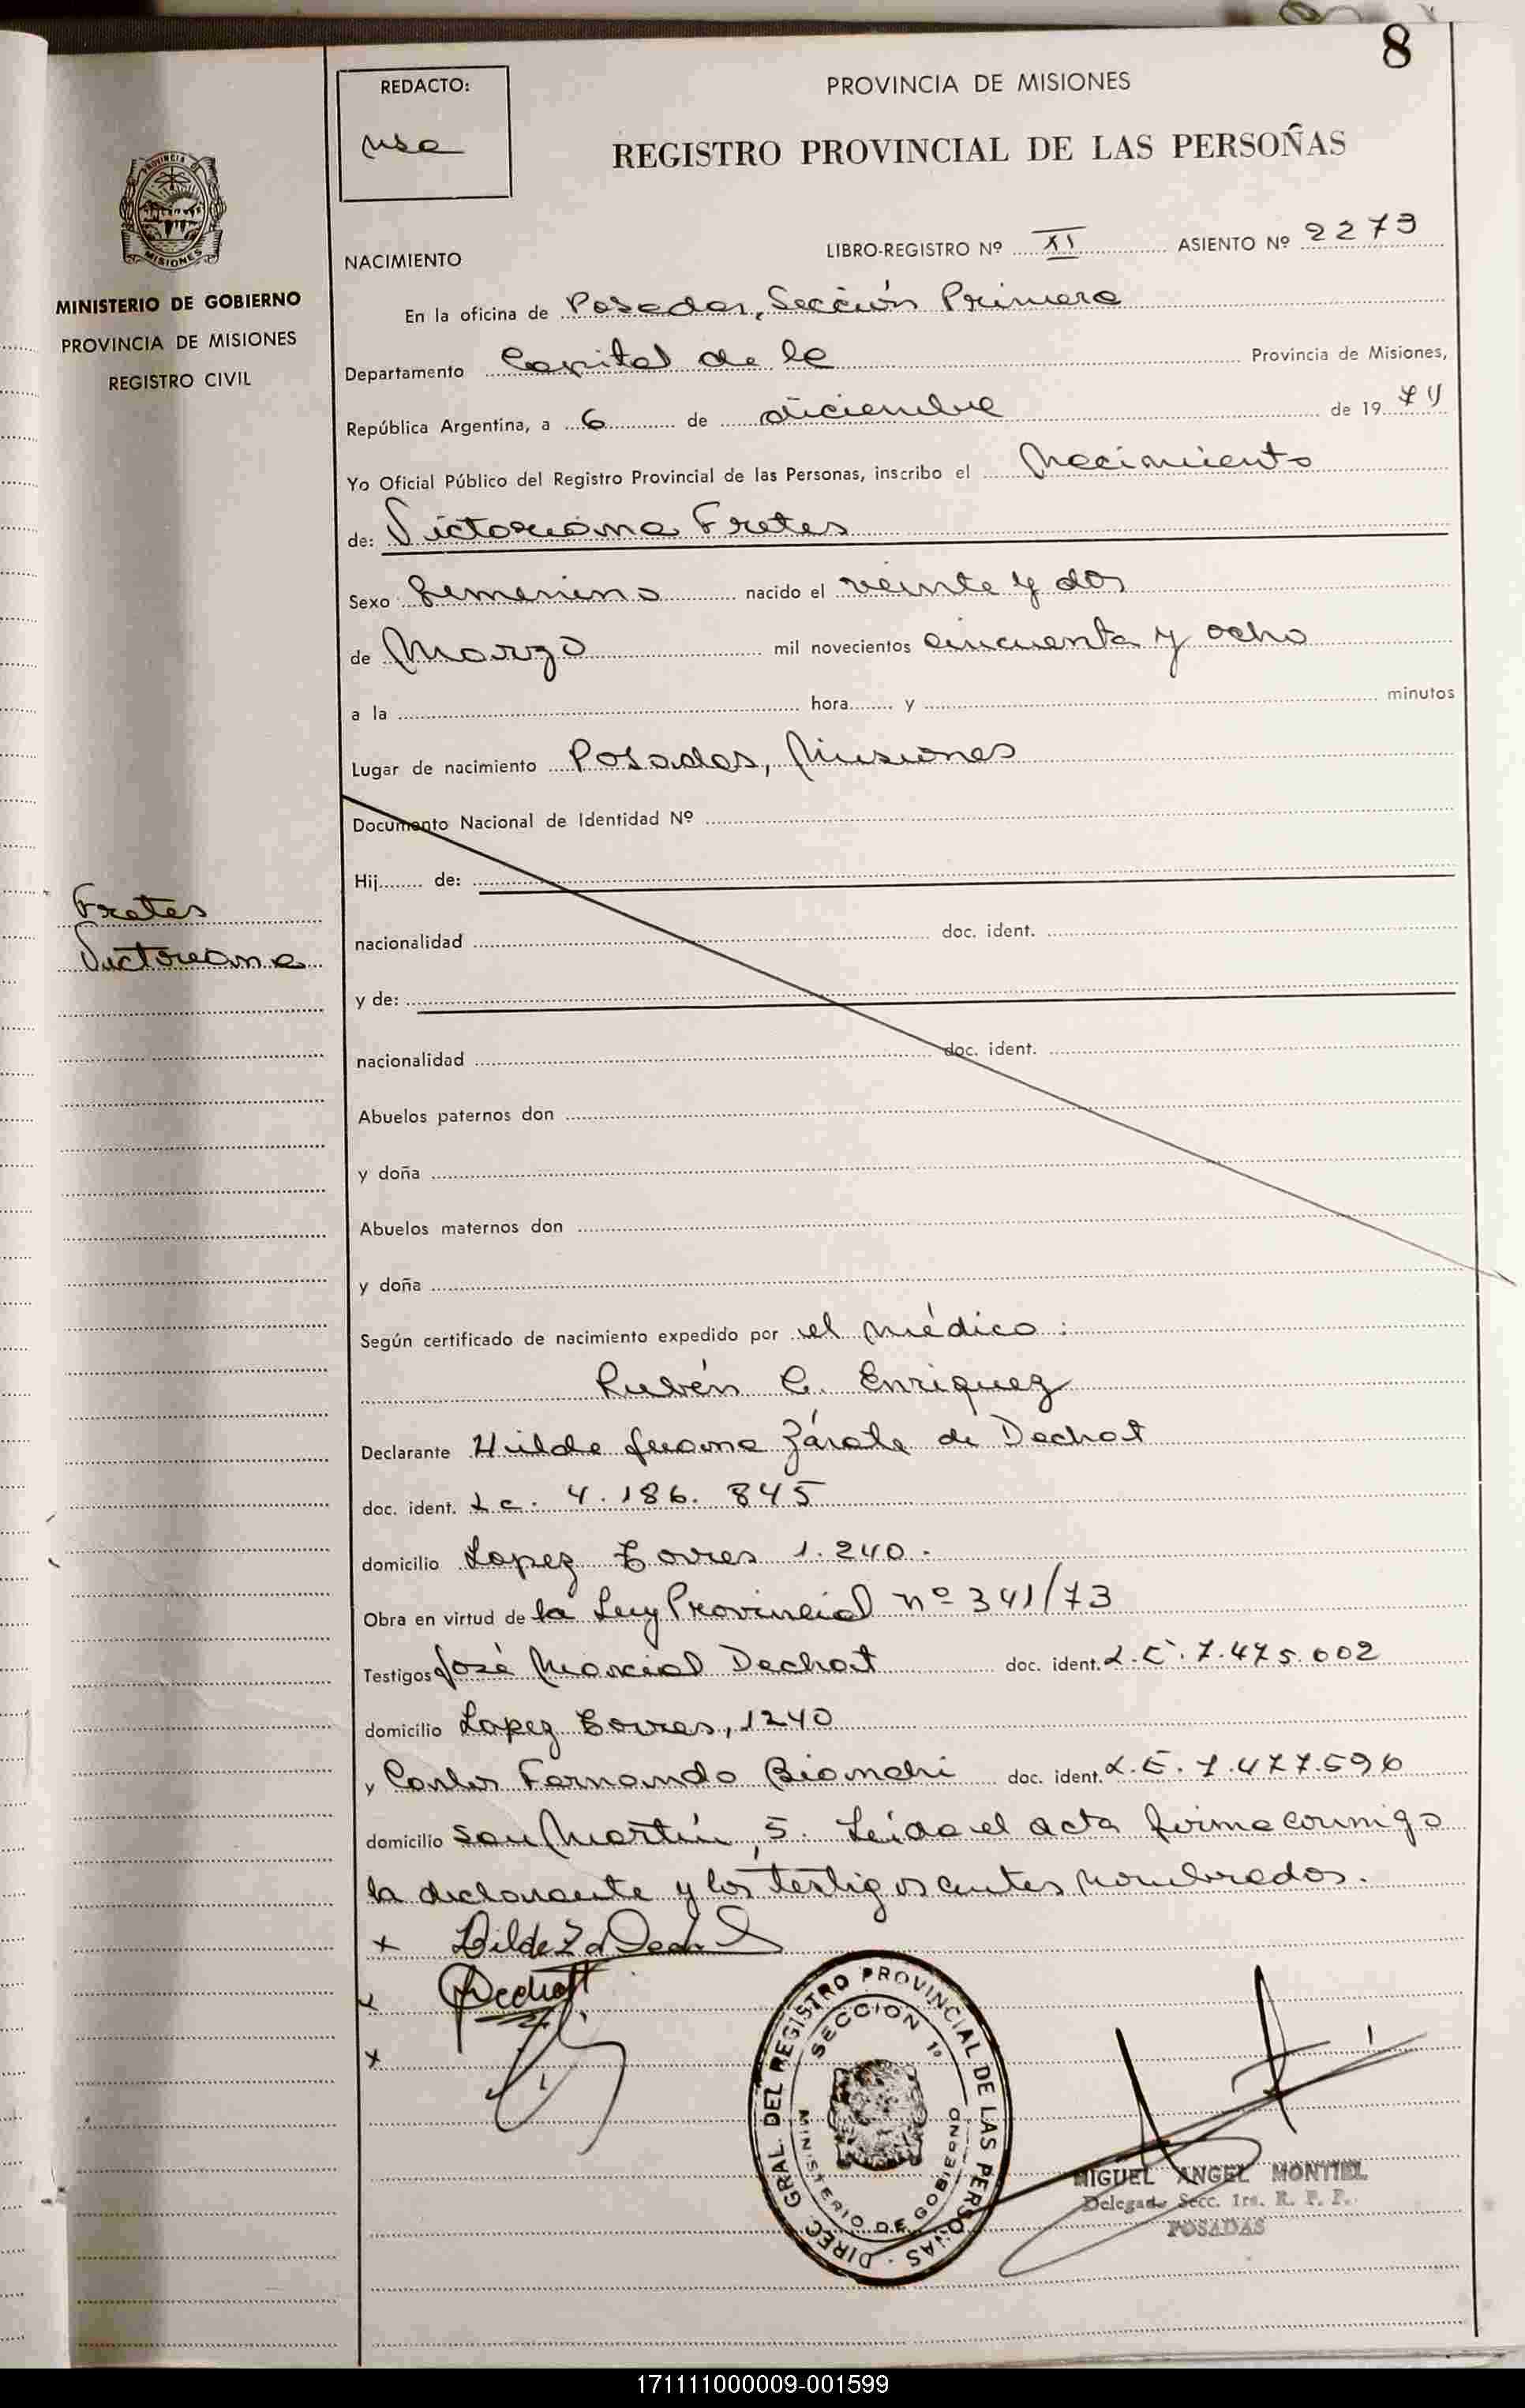 8
REDACTO:
PROVINCIA DE MISIONES
REGISTRO PROVINCIAL DE LAS PERSOÑAS
PROVINCIA DE
MISIONES
MINISTERIO DE GOBIERNO
PROVINCIA DE MISIONES
REGISTRO CIVIL
NACIMIENTO
LIBRO-REGISTRO Nº XI ASIENTO Nº 2273
En la oficina de Posadas, Sección Primera
Departamento Capital de la Provincia de Misiones,
República Argentina, a 6 de diciembre de 1974
Yo Oficial Público del Registro Provincial de las Personas, inscribo el Nacimiento
de: Victoriana Fretes
Sexo femenino nacido el veinte y dos
de Marzo mil novecientos cincuenta y ocho
a la hora y minutos
Lugar de nacimiento Posadas, Misiones
Documento Nacional de Identidad Nº
Hij de:
Fretes
Victoriana
nacionalidad doc. ident.
y de:
nacionalidad doc. ident.
Abuelos paternos don
y doña
Abuelos maternos don
y doña
Según certificado de nacimiento expedido por el médico:
Rubén C. Enriquez
Declarante Hilda Juana Zárate de Dechat
doc. ident. L c. 4.186.845
domicilio Lopez Torres 1.240.
Obra en virtud de la Ley Provincial nº 341/73
Testigos José Marcial Dechat doc. ident. L.E. 7.475.002
domicilio Lopez Torres, 1240
y Carlos Fernando Bianchi doc. ident. L.E. 7.477.596
domicilio San Martín, 5. Leída el acta firma conmigo
la declarante y los testigos antes nombrados.
x
x Dechat
x
DIREC. GRAL. DEL REGISTRO PROVINCIAL DE LAS PERSONAS
SECCION 1º
MINISTERIO DE GOBIERNO
MIGUEL ANGEL MONTIEL
Delegado Secc. 1ra. R. P. P.
POSADAS
171111000009-001599